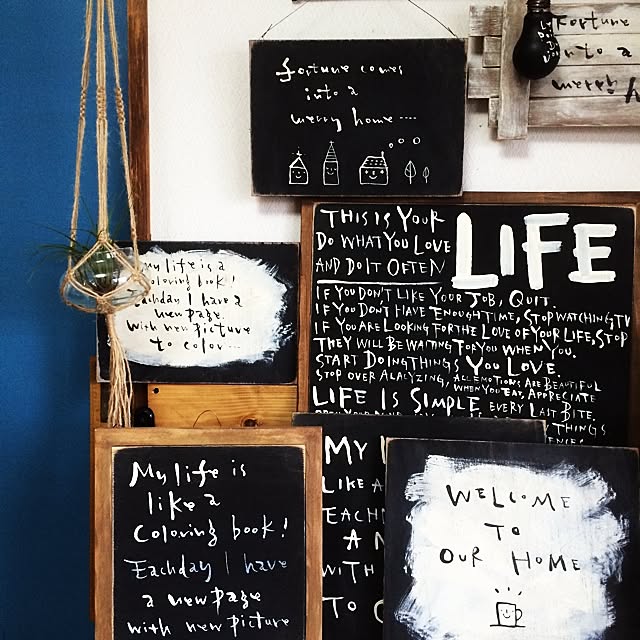 fortune comes
into a
merry home....
Fortune
into a
merry
THIS IS YOUR
DO WHAT YOU LOVE
AND DO IT OFTEN
LIFE
IF YOU DON'T LIKE YOUR JOB, QUIT.
IF YOU DON'T HAVE ENOUGH TIME, STOP WATCHING TV
IF YOU ARE LOOKING FOR THE LOVE OF YOUR LIFE, STOP
THEY WILL BE WAITING FOR YOU WHEN YOU.
START DOING THINGS YOU LOVE.
STOP OVER ALALYZING, ALL EMOTIONS ARE BEAUTIFUL
WHEN YOU EAT, APPRECIATE
LIFE IS SIMPLE. EVERY LAST BITE.
THINGS
my life is a
coloring book!
Eachday I have a
new page.
with new picture
to color...
My life is
like a
Coloring book!
Eachday I have
a new page
with new picture
MY
LIKE A
EACH
A N
WITH
TO C
WELCOME
TO
OUR HOME